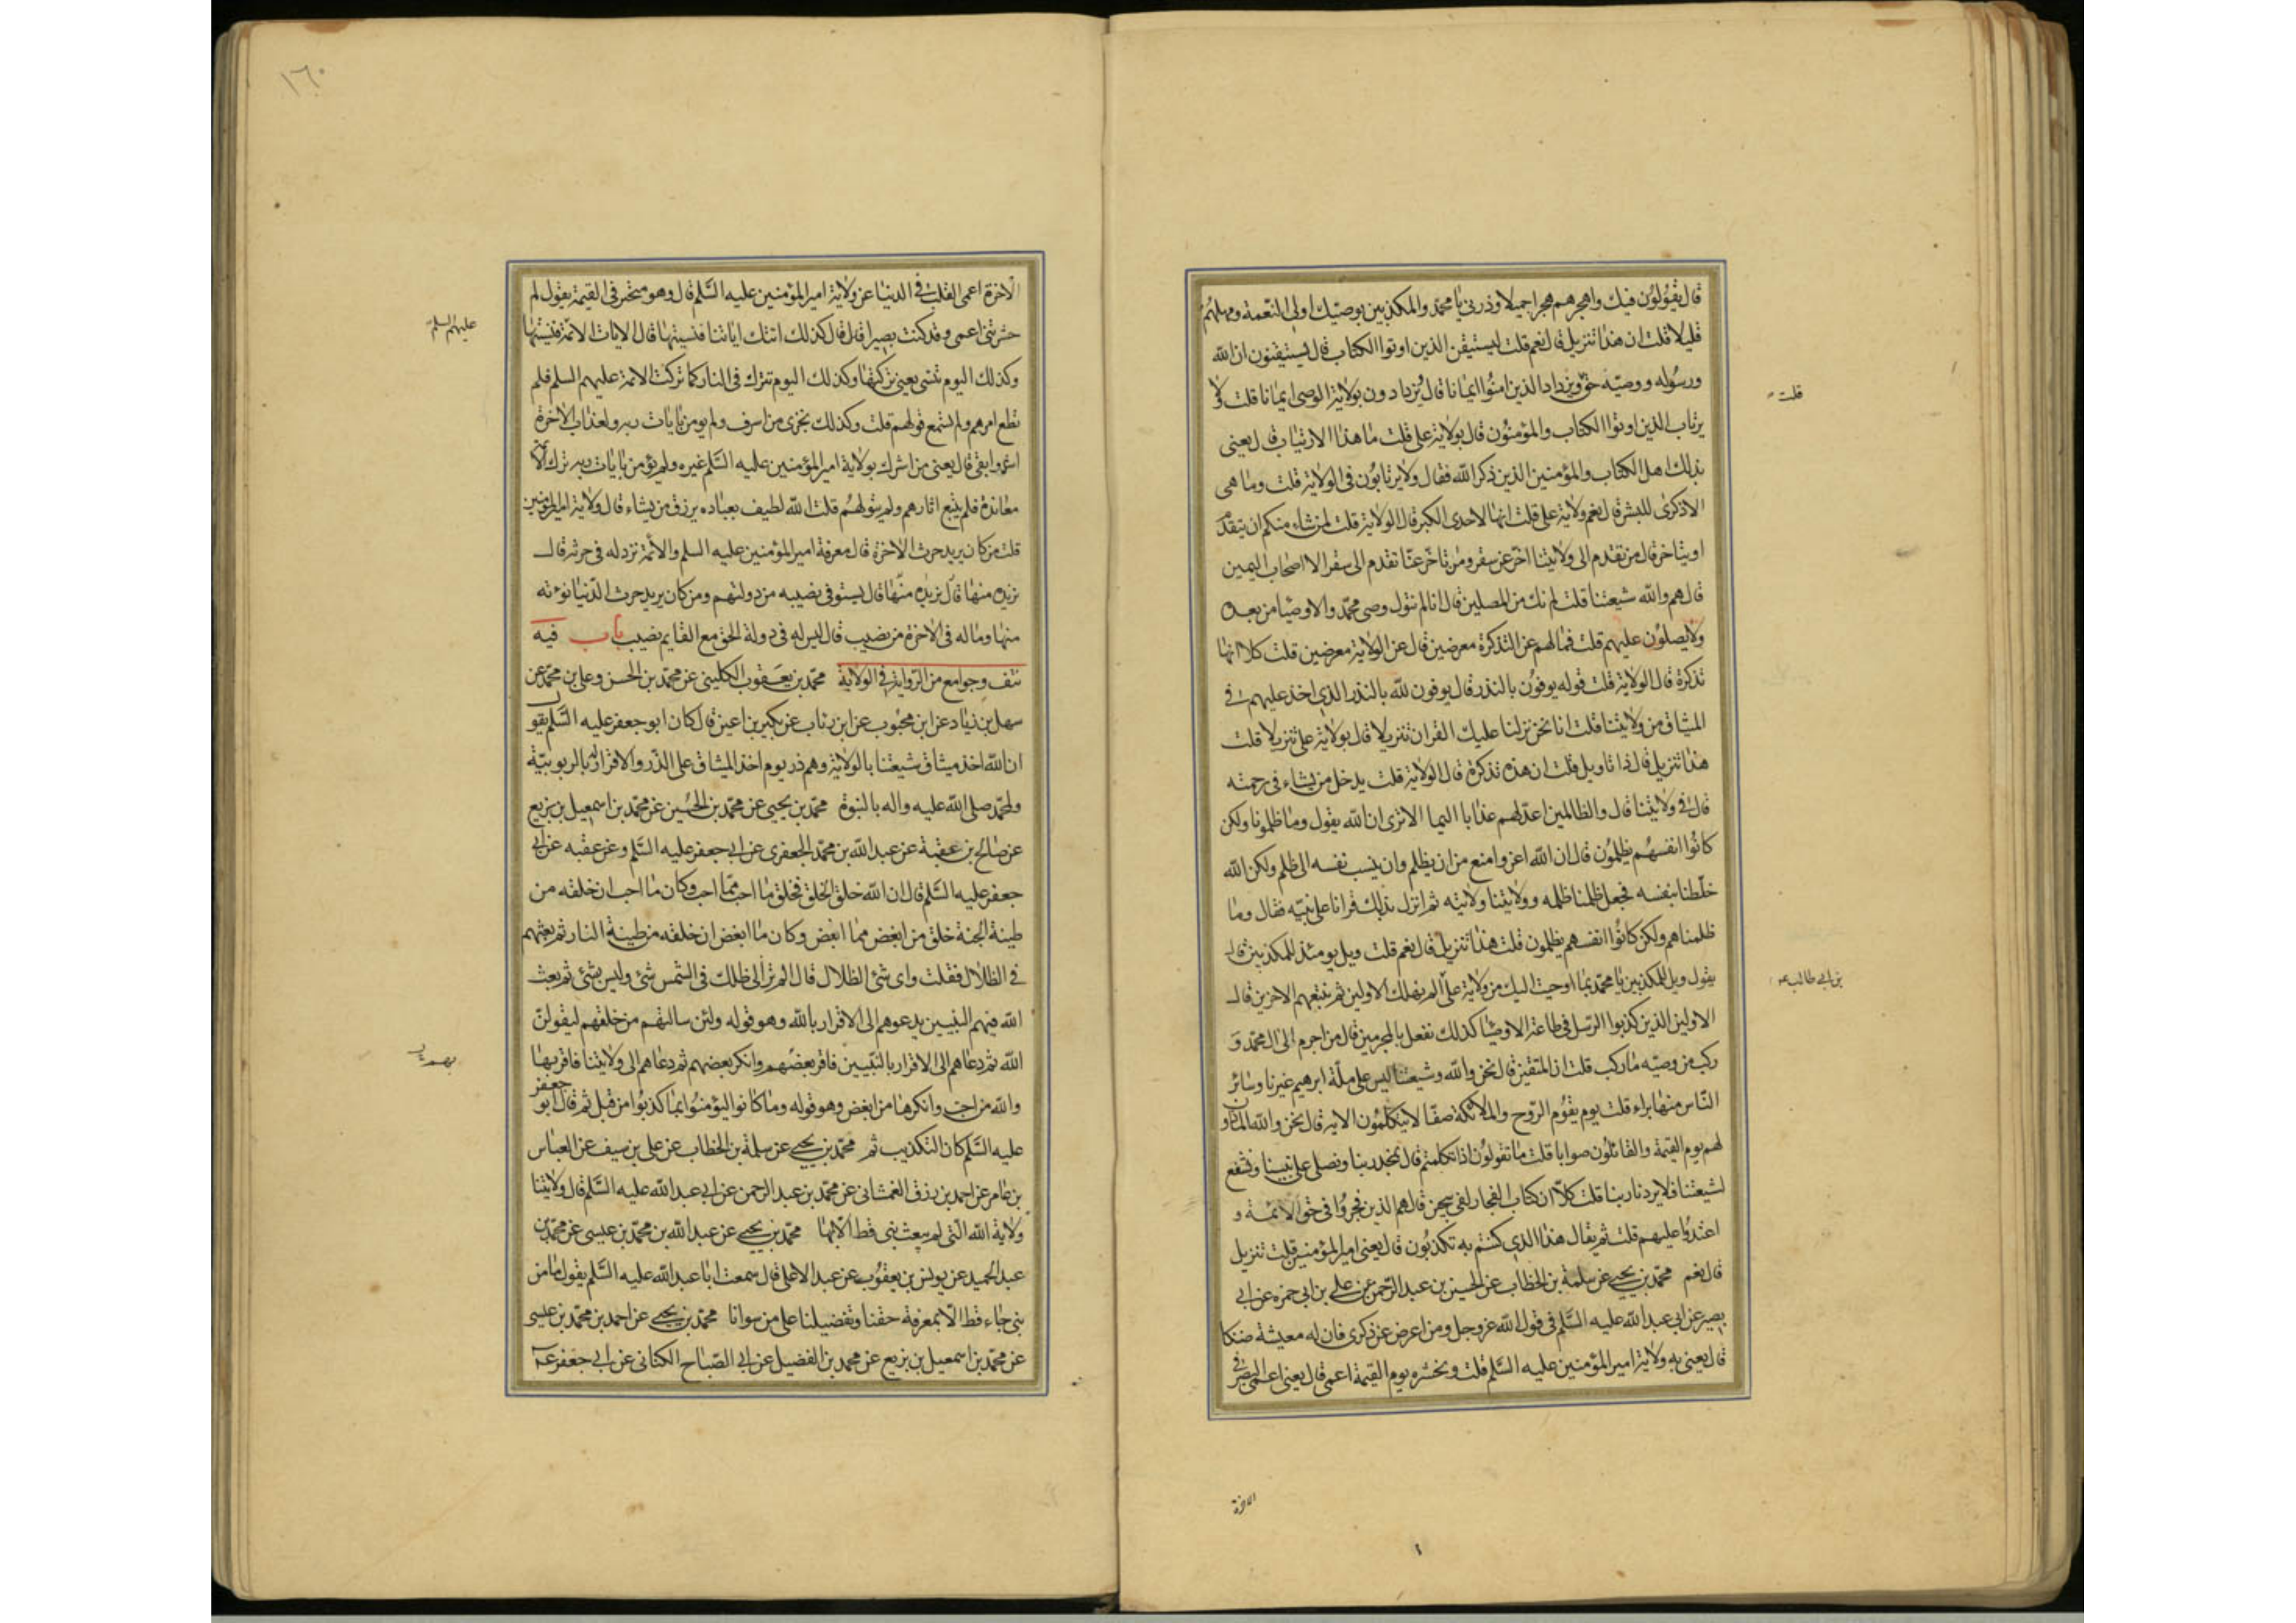 قال يقولون فيك واهجرهم هجرا جميلا وذرني يا محمد والمكذبين بوصيك اولى النعمة ومهلهم
قليلا قلت ان هذا تنزيل قال نعم قلت ليستيقن الذين اوتوا الكتاب قال يستيقنون ان الله
ورسوله ووصيه حق ويزداد الذين امنوا ايمانا قال يزدادون بولاية الوصى ايمانا قلت ولا
قلت
يرتاب الذين اوتوا الكتاب والمؤمنون قال بولاية على قلت ما هذا الارتياب قال يعنى
بذلك اهل الكتاب والمؤمنين الذين ذكر الله فقال ولا يرتابون فى الولاية قلت وما هى
الا ذكرى للبشر قال نعم ولاية على قلت انها لاحدى الكبر قال الولاية قلت لمن شاء منكم ان يتقدم
او يتاخر قال من تقدم الى ولايتنا اخر عن سقر ومن تاخر عنا تقدم الى سقر الا اصحاب اليمين
قال هم والله شيعتنا قلت لم نك من المصلين قال انا لم نتول وصى محمد والاوصيا من بعده
ولا يصلون عليهم قلت فما لهم عن التذكرة معرضين قال عن الولاية معرضين قلت كلا انها
تذكرة قال الولاية قلت قوله يوفون بالنذر قال يوفون لله بالنذر الذى اخذ عليهم فى
الميثاق من ولايتنا قلت انا نحن نزلنا عليك القران تنزيلا قال بولاية على تنزيلا قلت
هذا تنزيل قال ذا تاويل قلت ان هذه تذكرة قال الولاية قلت يدخل من يشاء فى رحمته
قال فى ولايتنا قال والظالمين اعد لهم عذابا اليما الا ترى ان الله يقول وما ظلمونا ولكن
كانوا انفسهم يظلمون قال ان الله اعز وامنع من ان يظلم وان ينسب نفسه الى ظلم ولكن الله
خلطنا بنفسه فجعل ظلمنا ظلمه وولايتنا ولايته ثم انزل بذلك قرانا على نبيه فقال وما
ظلمناهم ولكن كانوا انفسهم يظلمون قلت هذا تنزيل قال نعم قلت ويل يومئذ للمكذبين قال
يقول ويل للمكذبين يا محمد بما اوحيت اليك من ولاية على الم نهلك الاولين ثم نتبعهم الاخرين قال
بن ابى طالب
الاولين الذين كذبوا الرسل فى طاعة الاوصيا كذلك نفعل بالمجرمين قال من اجرم الى ال محمد و
ركب من وصيه ما ركب قلت ان المتقين قال نحن والله وشيعتنا ليس على ملة ابرهيم غيرنا وسائر
الناس منها براء قلت يوم يقوم الروح والملائكة صفا لا يتكلمون الاية قال نحن والله الماذون
لهم يوم القيمة والقائلون صوابا قلت ما تقولون اذا تكلمتم قال نمجد ربنا ونصلى على نبينا ونشفع
لشيعتنا فلا يردنا ربنا قلت كلا ان كتاب الفجار لفى سجين قال هم الذين فجروا فى حق الائمة و
اعتدوا عليهم قلت ثم يقال هذا الذى كنتم به تكذبون قال يعنى امير المؤمنين قلت تنزيل
قال نعم محمد بن يحيى عن سلمة بن الخطاب عن الحسين بن عبد الرحمن عن على بن ابى حمزه عن ابى
بصير عن ابى عبد الله عليه السلم فى قول الله عز وجل ومن اعرض عن ذكرى فان له معيشة ضنكا
قال يعنى به ولاية امير المؤمنين عليه السلم قلت ونحشره يوم القيمة اعمى قال يعنى اعمى البصر فى
الاخرة
١٦٠
الاخرة اعمى القلب فى الدنيا عن ولاية امير المؤمنين عليه السلم قال وهو متحير فى القيمة يقول لم
حشرتنى اعمى وقد كنت بصيرا قال قال كذلك اتتك اياتنا فنسيتها قال الايات الائمة فنسيتها
عليهم السلم
وكذلك اليوم تنسى يعنى تركتها وكذلك اليوم تترك فى النار كما تركت الائمة عليهم السلم فلم
تطع امرهم ولم تسمع قولهم قلت وكذلك نجزى من اسرف ولم يومن بايات ربه ولعذاب الاخرة
اشد وابقى قال يعنى من اشرك بولاية امير المؤمنين عليه السلم غيره ولم يؤمن بايات ربه ترك الائمة
معاندة فلم يتبع اثارهم ولم يتولهم قلت الله لطيف بعباده يرزق من يشاء قال ولاية امير المؤمنين
قلت من كان يريد حرث الاخرة قال معرفة امير المؤمنين عليه السلم والائمة نزد له فى حرثه قال
نزيده منها قال نزيده منها قال يستوفى نصيبه من دولتهم ومن كان يريد حرث الدنيا نؤته
منها وما له فى الاخرة من نصيب قال ليس له فى دولة الحق مع القايم نصيب باب فيه
نتف وجوامع من الرواية فى الولاية محمد بن يعقوب الكلينى عن محمد بن الحسن وعلى بن محمد عن
سهل بن زياد عن ابن محبوب عن ابن رئاب عن بكير بن اعين قال كان ابو جعفر عليه السلم يقول
ان الله اخذ ميثاق شيعتنا بالولاية وهم ذر يوم اخذ الميثاق على الذر والاقرار له بالربوبية
ولمحمد صلى الله عليه واله بالنبوة محمد بن يحيى عن محمد بن الحسين عن محمد بن اسمعيل بن بزيع
عن صالح بن عقبة عن عبد الله بن محمد الجعفرى عن ابى جعفر عليه السلم وعن عقبه عن ابى
جعفر عليه السلم قال ان الله خلق الخلق فخلق ما احب مما احب وكان ما احب ان خلقه من
طينة الجنة خلق من ابغض مما ابغض وكان ما ابغض ان خلقه من طينة النار ثم بعثهم
فى الظلال فقلت واى شئ الظلال قال الم تر الى ظلك فى الشمس شئ وليس بشئ ثم بعث
الله فيهم النبيين يدعوهم الى الاقرار بالله وهو قوله ولئن سالتهم من خلقهم ليقولن
الله ثم دعاهم الى الاقرار بالنبيين فاقر بعضهم وانكر بعضهم ثم دعاهم الى ولايتنا فاقر بها
والله من احب وانكرها من ابغض وهو قوله وما كانوا ليؤمنوا بما كذبوا من قبل ثم قال ابو جعفر
عليه السلم كان التكذيب ثم محمد بن يحيى عن سلمة بن الخطاب عن على بن سيف عن العباس
بن عامر عن احمد بن رزق الغمشانى عن محمد بن عبد الرحمن عن ابى عبد الله عليه السلم قال ولايتنا
ولاية الله التى لم يبعث نبى قط الا بها محمد بن يحيى عن عبد الله بن محمد بن عيسى عن محمد بن
عبد الحميد عن يونس بن يعقوب عن عبد الاعلى قال سمعت ابا عبد الله عليه السلم يقول ما من
نبى جاء قط الا بمعرفة حقنا وتفضيلنا على من سوانا محمد بن يحيى عن احمد بن محمد بن عيسى
عن محمد بن اسمعيل بن بزيع عن محمد بن الفضيل عن ابى الصباح الكنانى عن ابى جعفر عم